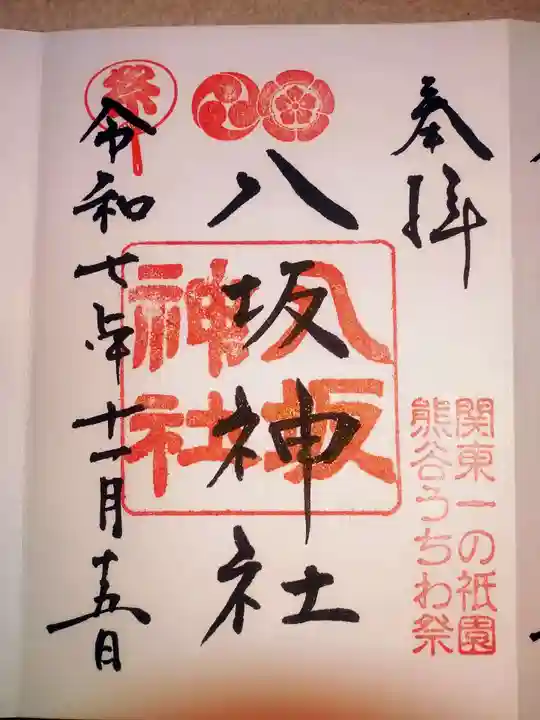 奉拝
関東一の祇園
熊谷うちわ祭
八坂神社
八坂
神社
令和七年十一月十五日